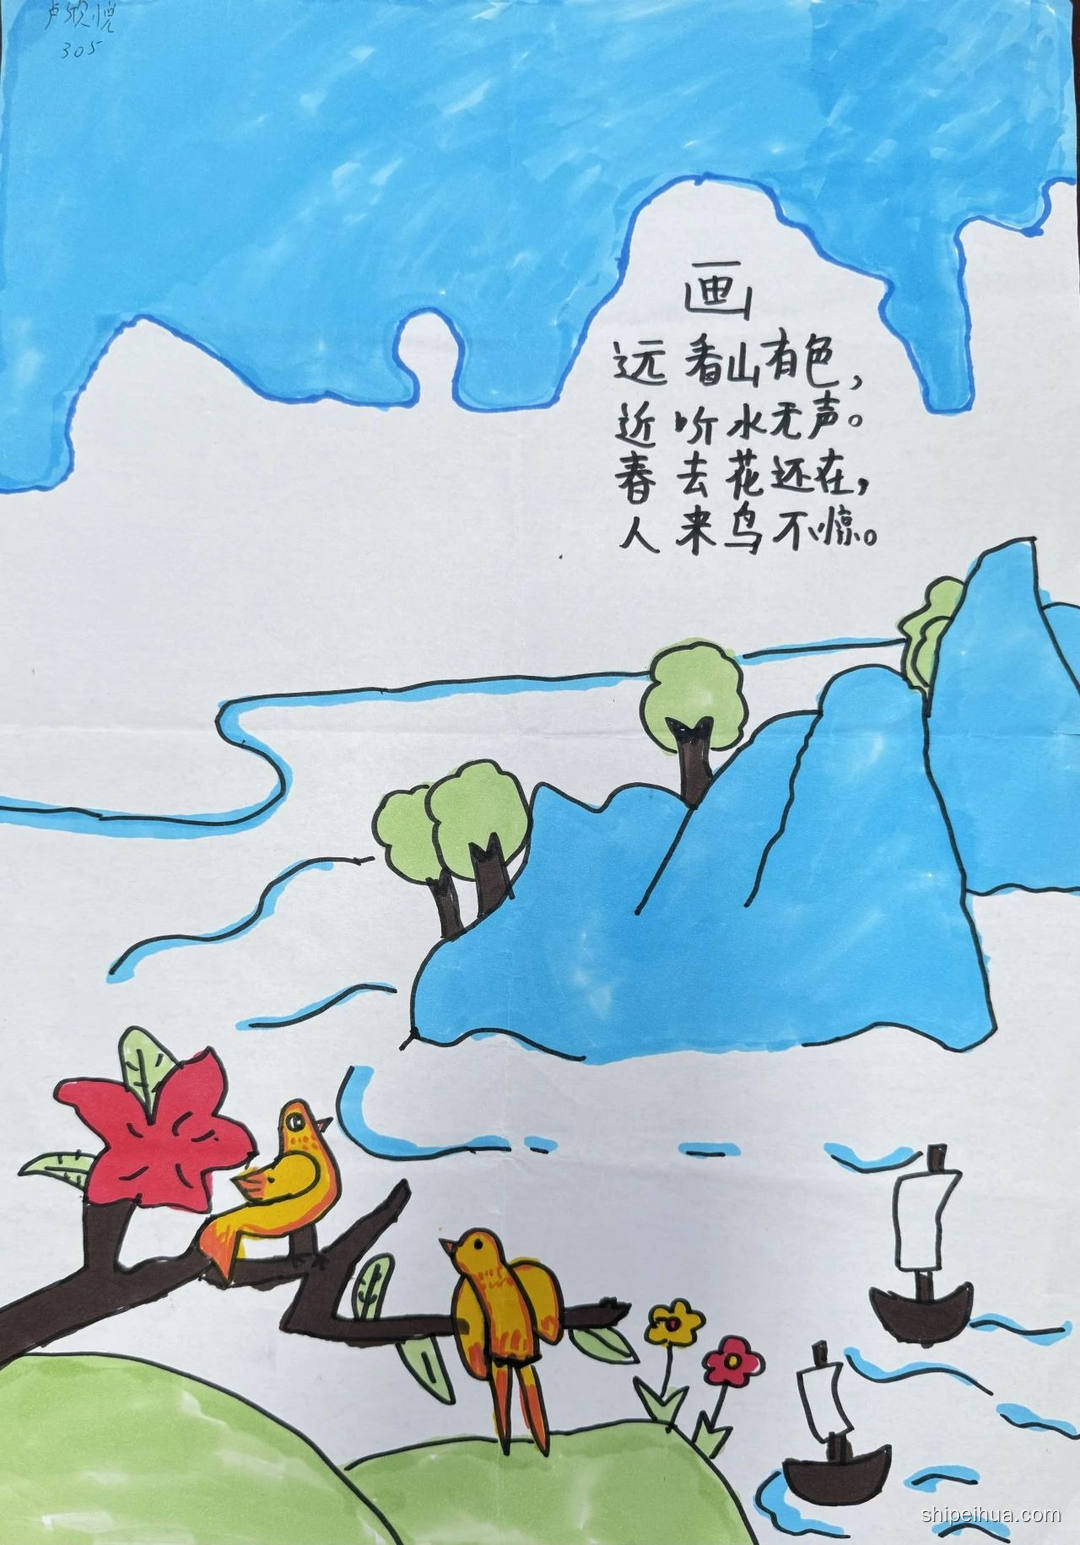 卢欣悦
305
画
远看山有色，
近听水无声。
春去花还在，
人来鸟不惊。
shipeihua.com